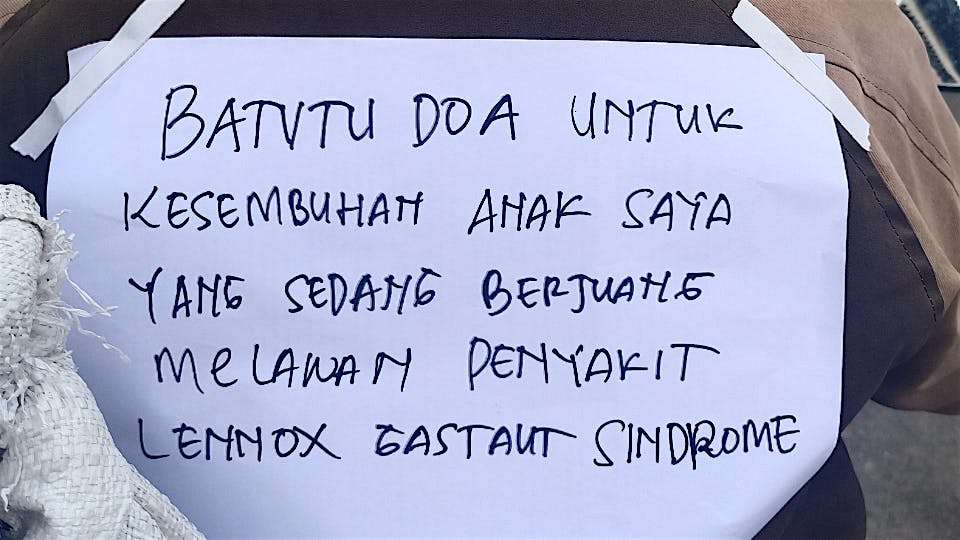 BATVTU DOA UNTUK
KESEMBUHAN ANAK SAYA
YANG SEDANG BERJUANG
MELAWAN PENYAKIT
LENNOX GASTAUT SINDROME